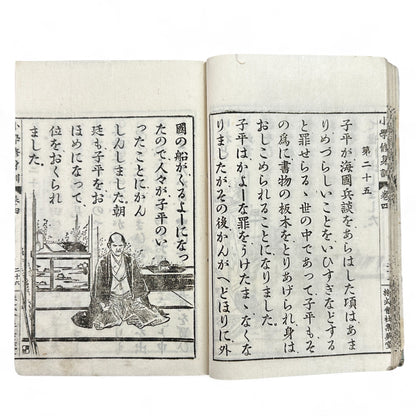 小學修身訓 卷四
第二十五
子平が海國兵談をあらはした頃はあま
りめづらしいことをいひすぎなどする
と罪せらるゝ世の中であつて子平もそ
の爲に書物の板木をとりあげられ身は
おしこめられることになりました。
子平はかよーな罪をうけたまゝなくな
りましたがその後かんがへどほりに外
國の船がくるよーになつ
たので人々が子平のい
つたことにかん
しんしました朝
廷も子平をお
ほめになつて、
位をおくられ
ました。